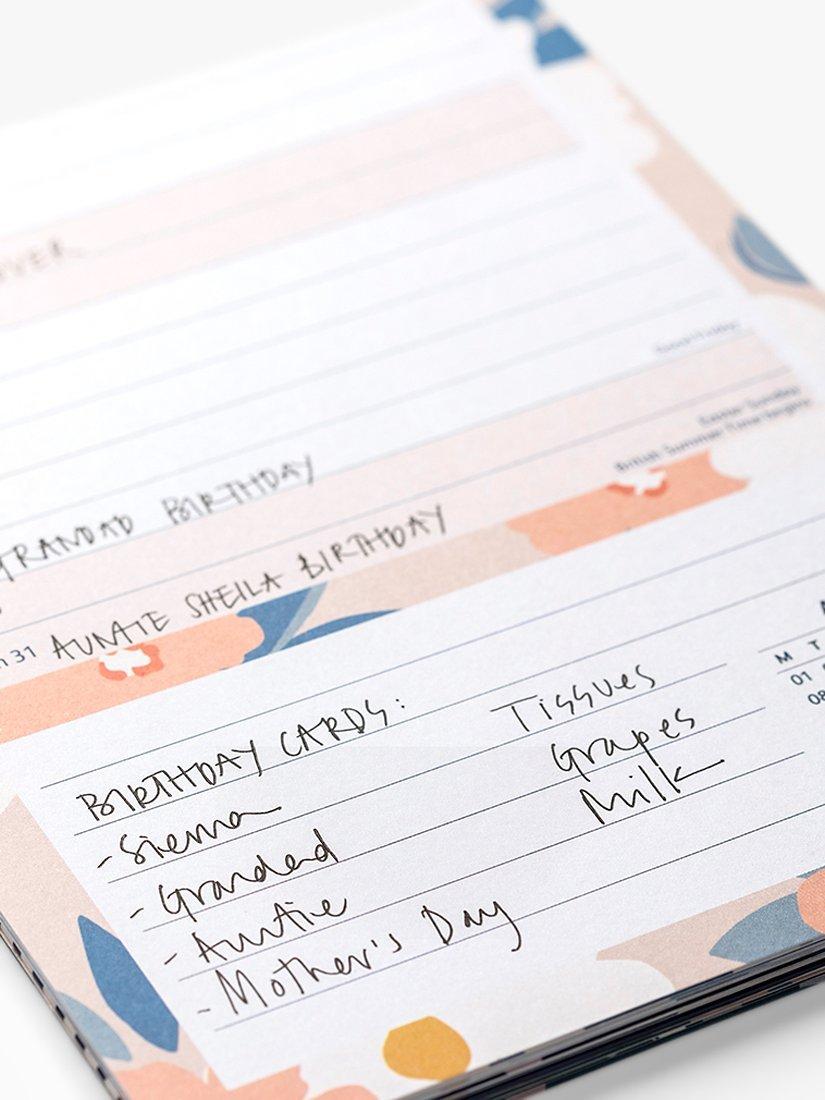 Good Friday
Easter Sunday
British Summer Time begins
GRANDAD BIRTHDAY
31 AUNTIE SHEILA BIRTHDAY
M T
01
08
BIRTHDAY CARDS:
- Sienna
- Grandad
- Auntie
- Mother's Day
Tissues
Grapes
Milk